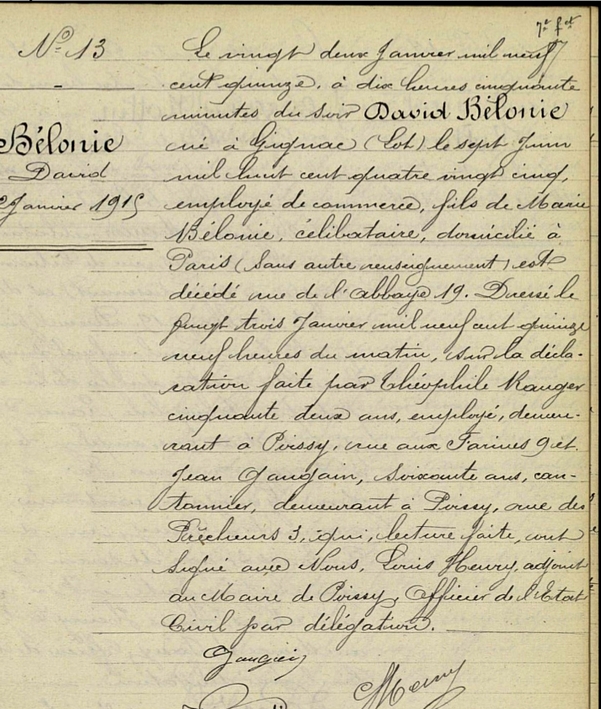 7e ft
No 13
Le vingt deux Janvier mil neuf
cent quinze, à dix heures cinquante
minutes du soir David Bélonie
né à Gignac (Lot) le sept Juin
mil huit cent quatre vingt cinq,
employé de commerce, fils de Marie
Bélonie, célibataire, domicilié à
Paris (sans autre renseignement) est
décédé rue de l'abbaye 19. Dressé le
vingt trois Janvier mil neuf cent quinze
neuf heures du matin, sur la décla-
ration faite par Théophile Rauger
cinquante deux ans, employé, demeu-
rant à Poissy, rue aux Farines 9 et
Jean Gaugain, soixante ans, can-
tonnier, demeurant à Poissy, rue des
Prêcheurs 3, qui, lecture faite, ont
signé avec Nous, Louis Henry, adjoint
au Maire de Poissy, Officier de l'Etat
Civil par délégation.
Bélonie
David
Janvier 1915
Gaugain
Henry